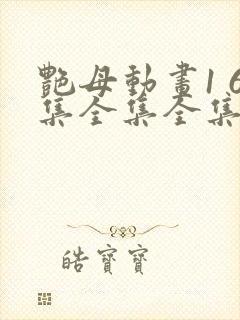 艷母動畫16
集全集全集
皓寶寶